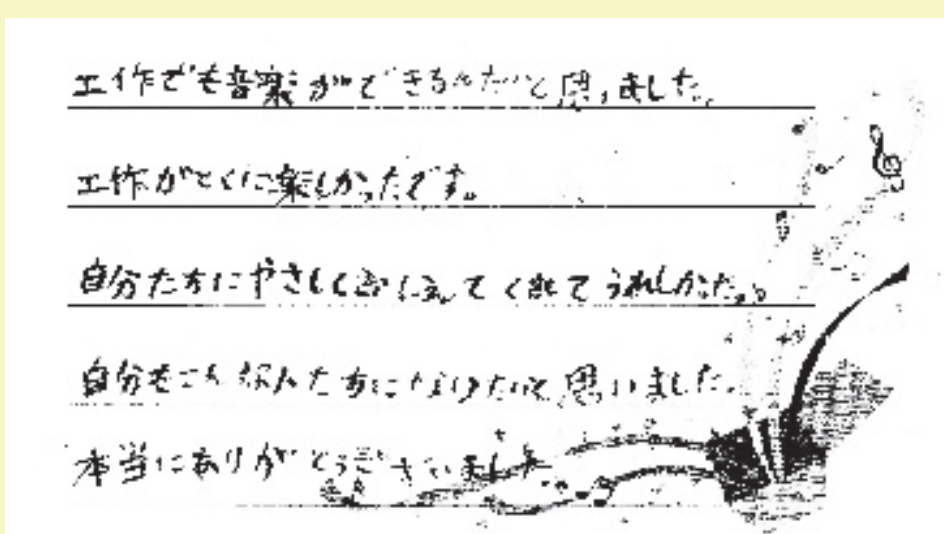 工作でも音楽ができるんだと思いました。
工作がとくに楽しかったです。
自分たちにやさしくおしえてくれてうれしかった。
自分もこんな人たちになりたいと思いました。
本当にありがとうございました